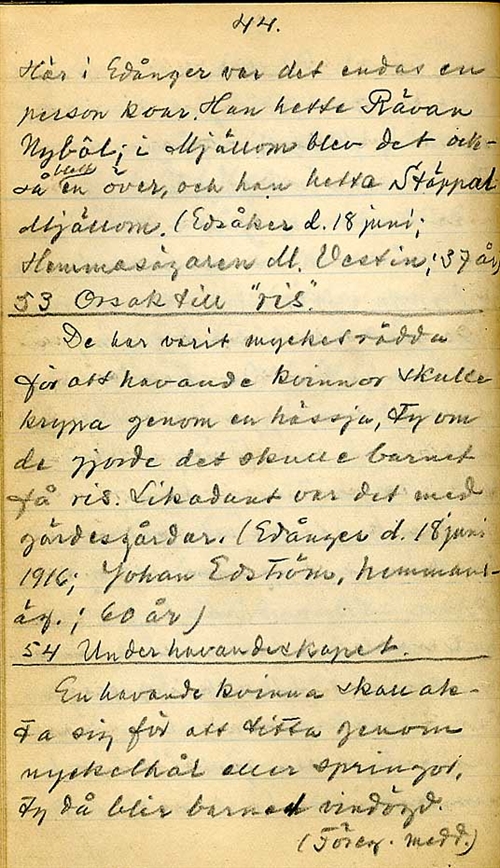 44.
Här i Edånger var det endas en
person kvar. Han hette Rävan
Nyböl; i Mjällom blev det ock-
så en blott över, och han hette Stäppat
Mjällom. (Edsåker d. 18 juni;
Hemmasägaren M. Vestin; 37 år)
53 Orsak till "ris".
De har varit mycket rädda
för att havande kvinnor skulle
krypa genom en hässja, ty om
de gjorde det skulle barnet
få ris. Likadant var det med
gärdesgårdar. (Edånger d. 18 juni
1916; Johan Edström, hemmans-
äg.; 60 år)
54 Under havandeskapet.
En havande kvinna skall ak-
ta sig för att titta genom
nyckelhål eller springor,
ty då blir barnet vindögd.
(Föreg. medd.)